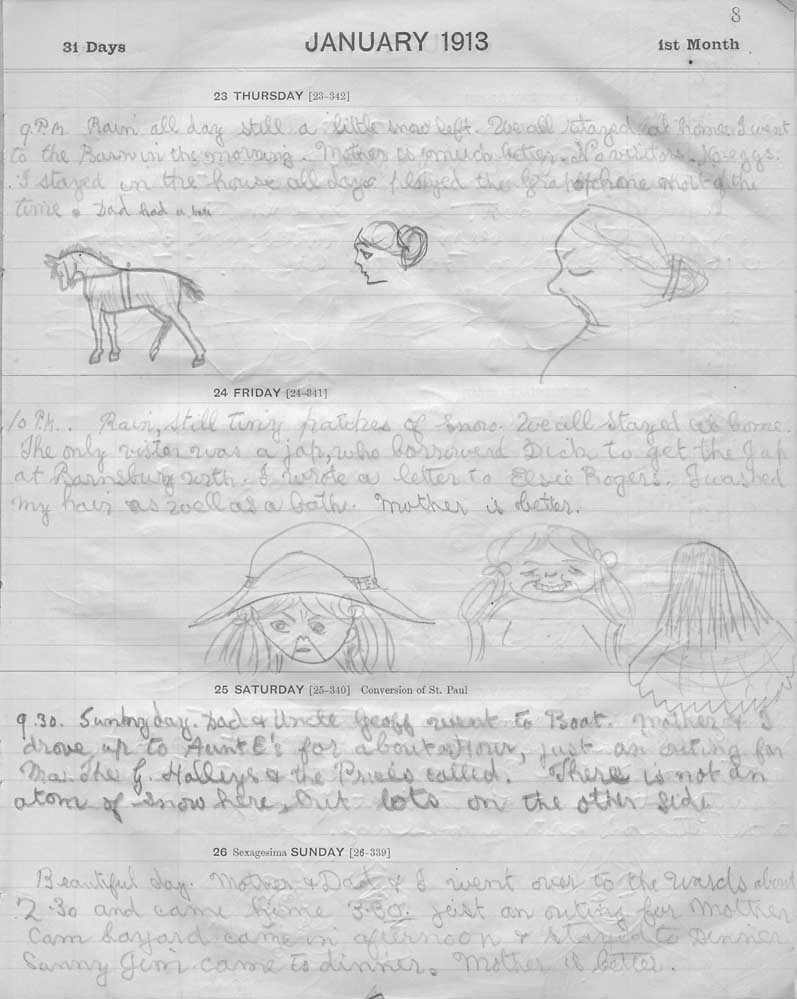 8
31 Days JANUARY 1913 1st Month
23 THURSDAY [23-342]
9 P.M. Rain all day still a little snow left. We all stayed at home. I went
to the Barn in the morning. Mother is much better. No visitors. No eggs.
I stayed in the house all day & played the Graphophone most of the
time. Dad had a
24 FRIDAY [24-341]
10 P.M.. Rain, still tiny patches of snow. We all stayed at home.
The only vistor was a jap, who borrowed Dick to get the Jap
at Barnsbury I wrote a letter to Elsie Rogers. I washed
my hair as well as a bathe. Mother is better.
25 SATURDAY [25-340] Conversion of St. Paul
9.30. Sunny day. Dad & Uncle Geoff went to Boat. Mother & I
drove up to Aunt E's for about hour, just an outing for
Ma. The G. Halleys & the Prices called. There is not an
atom of snow here, but lots on the other side
26 Sexagesima SUNDAY [26-339]
Beautiful day. Mother & Dad & I went over to the Wards about
2.30 and came home 3.30. just an outing for Mother
Cam came in afternoon & stayed to Dinner
Sunny Jim came to dinner. Mother is better.